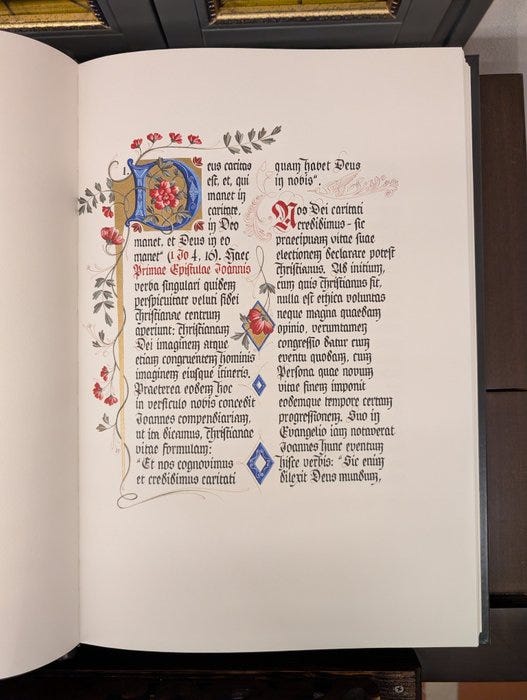 1.
Deus caritas
est, et, qui
manet in
caritate,
in Deo
manet, et Deus in eo
manet" (1 Io 4, 16). Haec
Primae Epistulae Ioannis
verba singulari quidem
perspicuitate veluti fidei
christianae centrum
aperiunt: christianam
Dei imaginem atque
etiam congruentem hominis
imaginem eiusque itineris.
Praeterea eodem hoc
in versiculo nobis concedit
Ioannes compendiariam,
ut ita dicamus, christianae
vitae formulam:
"Et nos cognovimus
et credidimus caritati
quam habet Deus
in nobis".
Nos Dei caritati
credidimus - sic
praecipuam vitae suae
electionem declarare potest
christianus. Ad initium,
cum quis christianus fit,
nulla est ethica voluntas
neque magna quaedam
opinio, verumtamen
congressio datur cum
eventu quodam, cum
Persona quae novum
vitae finem imponit
eodemque tempore certam
progressionem. Suo in
Evangelio iam notaverat
Ioannes hunc eventum
hisce verbis: "Sic enim
dilexit Deus mundum,